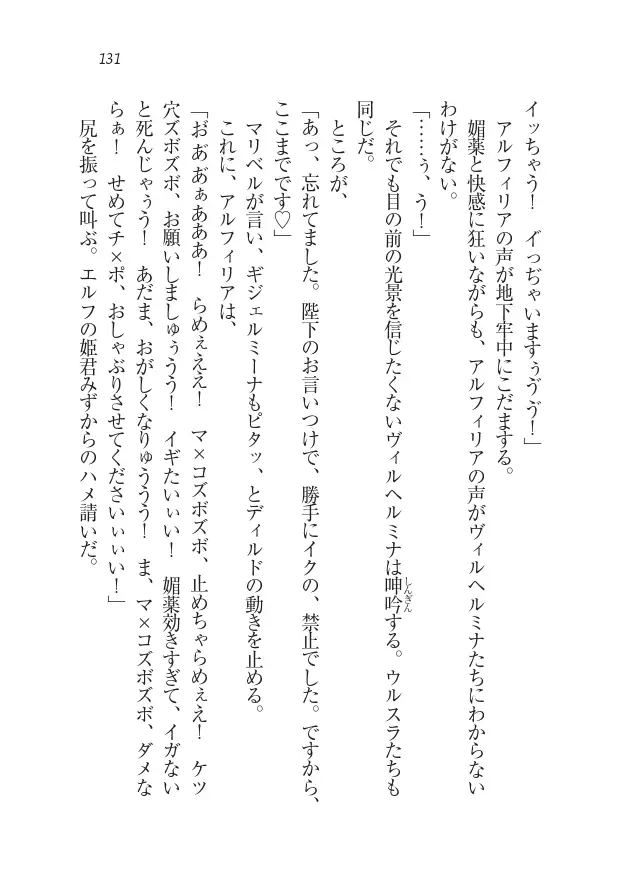 131
イッちゃう！　イっぢゃいますぅゔゔ！」
　アルフィリアの声が地下牢中にこだまする。
　媚薬と快感に狂いながらも、アルフィリアの声がヴィルヘルミナたちにわからない
わけがない。
「……ぅ、う！」
　それでも目の前の光景を信じたくないヴィルヘルミナは呻吟する。ウルスラたちも
しんぎん
同じだ。
　ところが、
「あっ、忘れてました。陛下のお言いつけで、勝手にイクの、禁止でした。ですから、
ここまでです♡」
　マリベルが言い、ギジェルミーナもピタッ、とディルドの動きを止める。
　これに、アルフィリアは、
「お゙あ゙あ゙ぁあああ！　らめぇええ！　マ×コズボズボ、止めちゃらめぇえ！　ケツ
穴ズボズボ、お願いしましゅぅうう！　イギたいぃい！　媚薬効きすぎて、イガない
と死んじゃぅう！　あだま、おがしくなりゅううう！　ま、マ×コズボズボ、ダメな
らぁ！　せめてチ×ポ、おしゃぶりさせてくださいぃぃい！」
　尻を振って叫ぶ。エルフの姫君みずからのハメ請いだ。